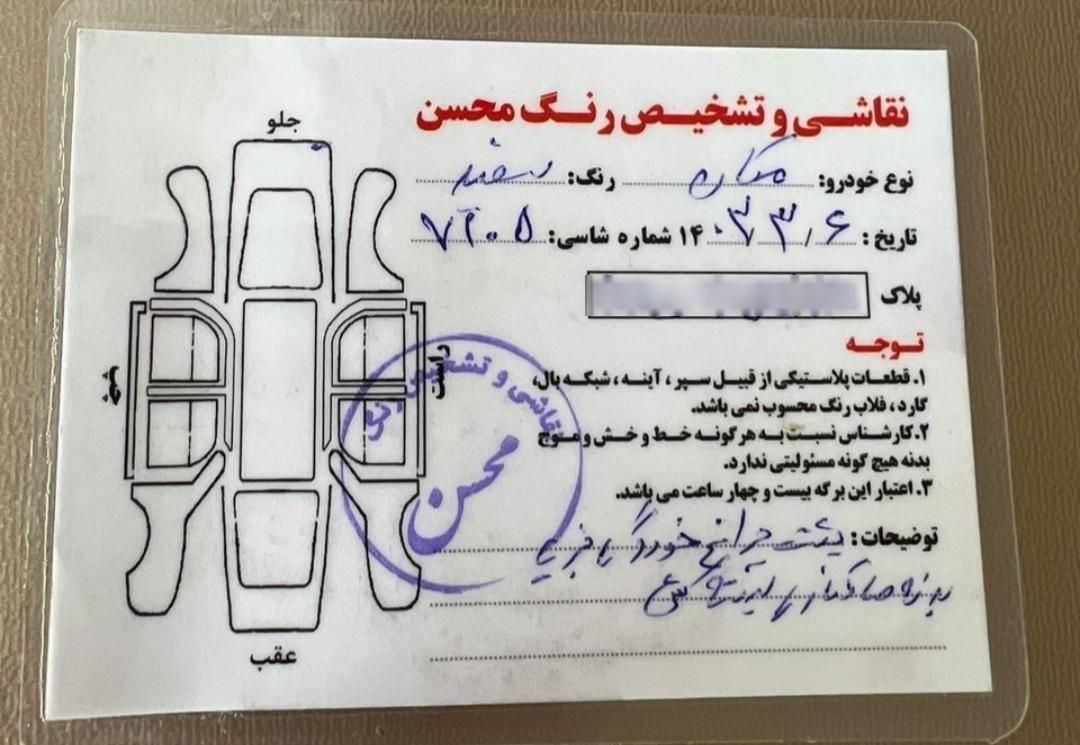 نقاشی و تشخیص رنگ محسن
جلو
نوع خودرو: رنگ: سفید
تاریخ: ۱۴۰۳/۳/۶ شماره شاسی:
پلاک
توجه
۱. قطعات پلاستیکی از قبیل سپر، آینه، شبکه بال،
گارد، قلاب رنگ محسوب نمی باشد.
۲. کارشناس نسبت به هر گونه خط و خش و موج
بدنه هیچ گونه مسئولیتی ندارد.
۳. اعتبار این برگه بیست و چهار ساعت می باشد.
توضیحات: پشت چراغ
چپ
راست
عقب
نقاشی و تشخیص رنگ
محسن